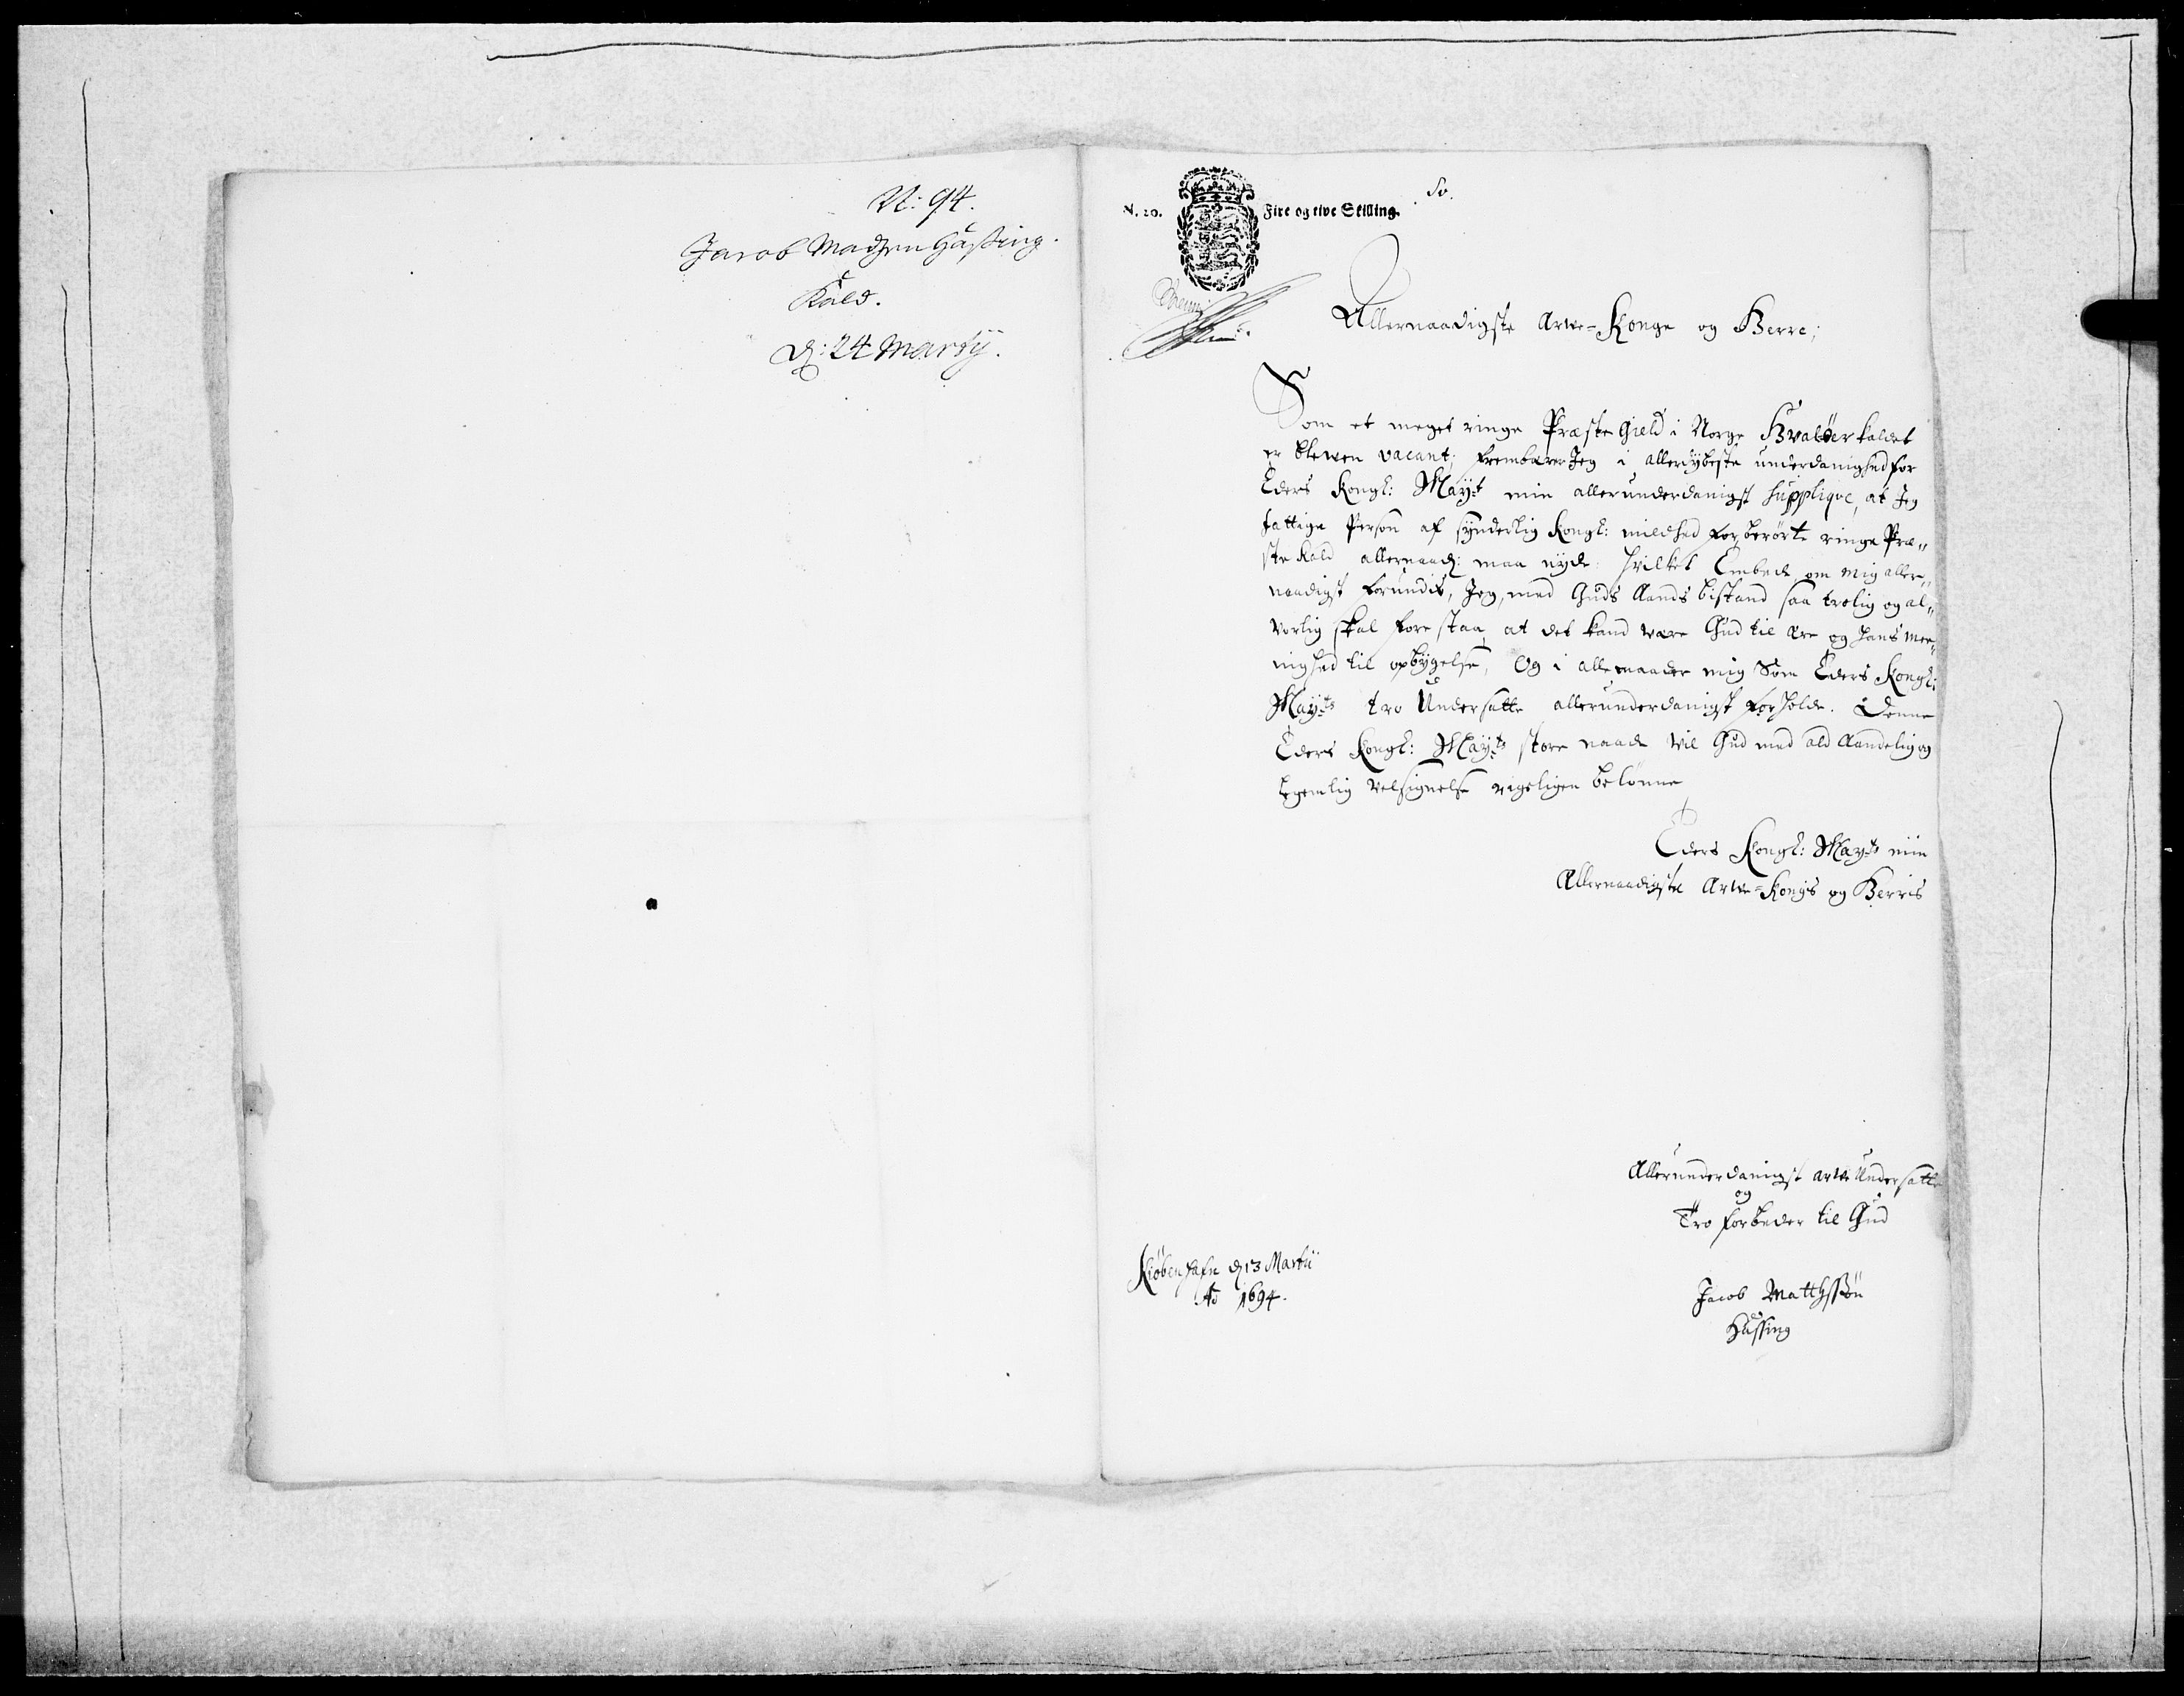 N: 94.
Jacob Madzen Hussing.
Kald.
d: 24 Martij.
N. 20. Fire og tive Skilling.
So.
Allernaadigste Arve-Konge og Herre;
Som et meget ringe Præste Gield i Norge Hvaløer kaldet
er bleven vacant; frembærer Jeg i allerdybeste underdanighed for
Eders Kongl: May:t min allerunderdanigst supplique, at Jeg
fattige Person af synderlig Kongl: mildhed forberørte ringe Præ„
ste Kald allernaad: maa nyde: hvilket Embede om mig aller„
naadigst forundis, Jeg, med Guds Aands bistand saa trolig og al„
vorlig skal forestaa, at det kand være Gud til Ære og hans Me„
nighed til opbygelse, Og i alle maader mig Som Eders Kongl:
May:ts tro Undersatte allerunderdanigst forholde. Denne
Eders Kongl: May:ts store naade vil Gud med ald Aandelig og
legemlig Velsignelse rigeligen belønne
Eders Kongl: May:ts min
Allernaadigste Arve-Kongis og Herris
Allerunderdanigst arve Undersatte
og
Tro forbeder til Gud
Kiøbenhafn d 13 Martii
Ao 1694.
Jacob Matthssøn
Hussing